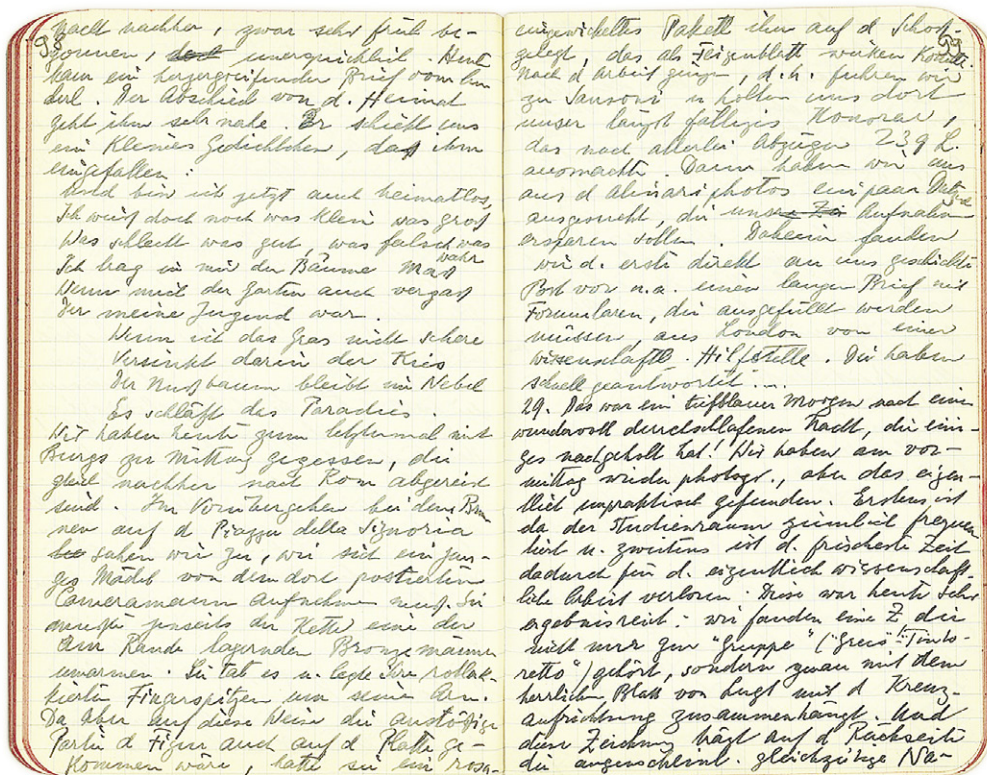 98
nacht nachher, zwar sehr früh be-
gonnen, unerquicklich. Heut
kam ein herzergreifender Brief vom
derl. Der Abschied von d. Heimat
geht ihm sehr nahe. Er schickt uns
ein kleines Gedichtchen, das ihm
eingefallen:
Und bin ich jetzt auch heimatlos,
Ich weiß doch noch was klein was groß
Was schlecht was gut, was falsch was
wahr
Ich trag in mir der Bäume Maß
Wenn mich der Garten auch vergaß
Der meine Jugend war.
Wenn ich das Gras nicht schere
Versinkt darin der Kies
Der Nußbaum bleibt im Nebel
Es schläft das Paradies.
Wir haben heute zum letztenmal mit
Burgs zu Mittag gegessen, die
gleich nachher nach Rom abgereist
sind. Im Vorübergehen bei dem Brun
nen auf d Piazza della Signoria
sahen wir zu, wie sich ein jun-
ges Mädel von dem dort postierten
Cameramann aufnehmen ließ. Sie
mußte jenseits der Kette eine der
am Rande lagernden Bronzemänner
umarmen. Sie tat es u. legte ihre rotlak-
kierten Fingerspitzen um seinen Arm.
Da aber auf diese Weise die anstößige
Partie d Figur auch auf d Platte ge-
kommen wäre, hatte sie ein rosa-
99
eingewickeltes Pakettl ihm auf d Schoß
gelegt, das als Feigenblatt wirken konnte.
Nach d Arbeit gingen, d.h. fuhren wir
zu Sansoni u holten uns dort
unser längst fälliges Honorar,
das nach allerlei Abzügen 239 L.
ausmachte. Dann haben wir uns
aus d Alinariphotos ein paar
ausgesucht, die uns Aufnahm
ersparen sollen. Daheim fanden
wir d. erste direkt an uns geschickte
Post vor u.a. einen langen Brief mit
Formularen, die ausgefüllt werden
müssen, aus London von einer
wissenschaftl. Hilfstelle. Die haben
schnell geantwortet ...
29. Das war ein tiefblauer Morgen nach einer
wundervoll durchschlafenen Nacht, die eini-
ges nachgeholt hat! Wir haben am Vor-
mittag wieder photogr., aber das eigen-
tlich unpraktisch gefunden. Erstens ist
da der Studienraum ziemlich frequen
tiert u. zweitens ist d. frischeste Zeit
dadurch für d. eigentlich wissenschaft-
liche Arbeit verloren. Diese war heute sehr
ergebnisreich: wir fanden eine Z die
nicht nur zur "Gruppe" ("Greis" Tinto-
retto") gehört, sondern genau mit dem
herrlichen Blatt von Lugt mit d Kreuz-
aufrichtung zusammenhängt. Und
diese Zeichnung trägt auf d Rückseite
die anscheinend gleichzeitige Na-